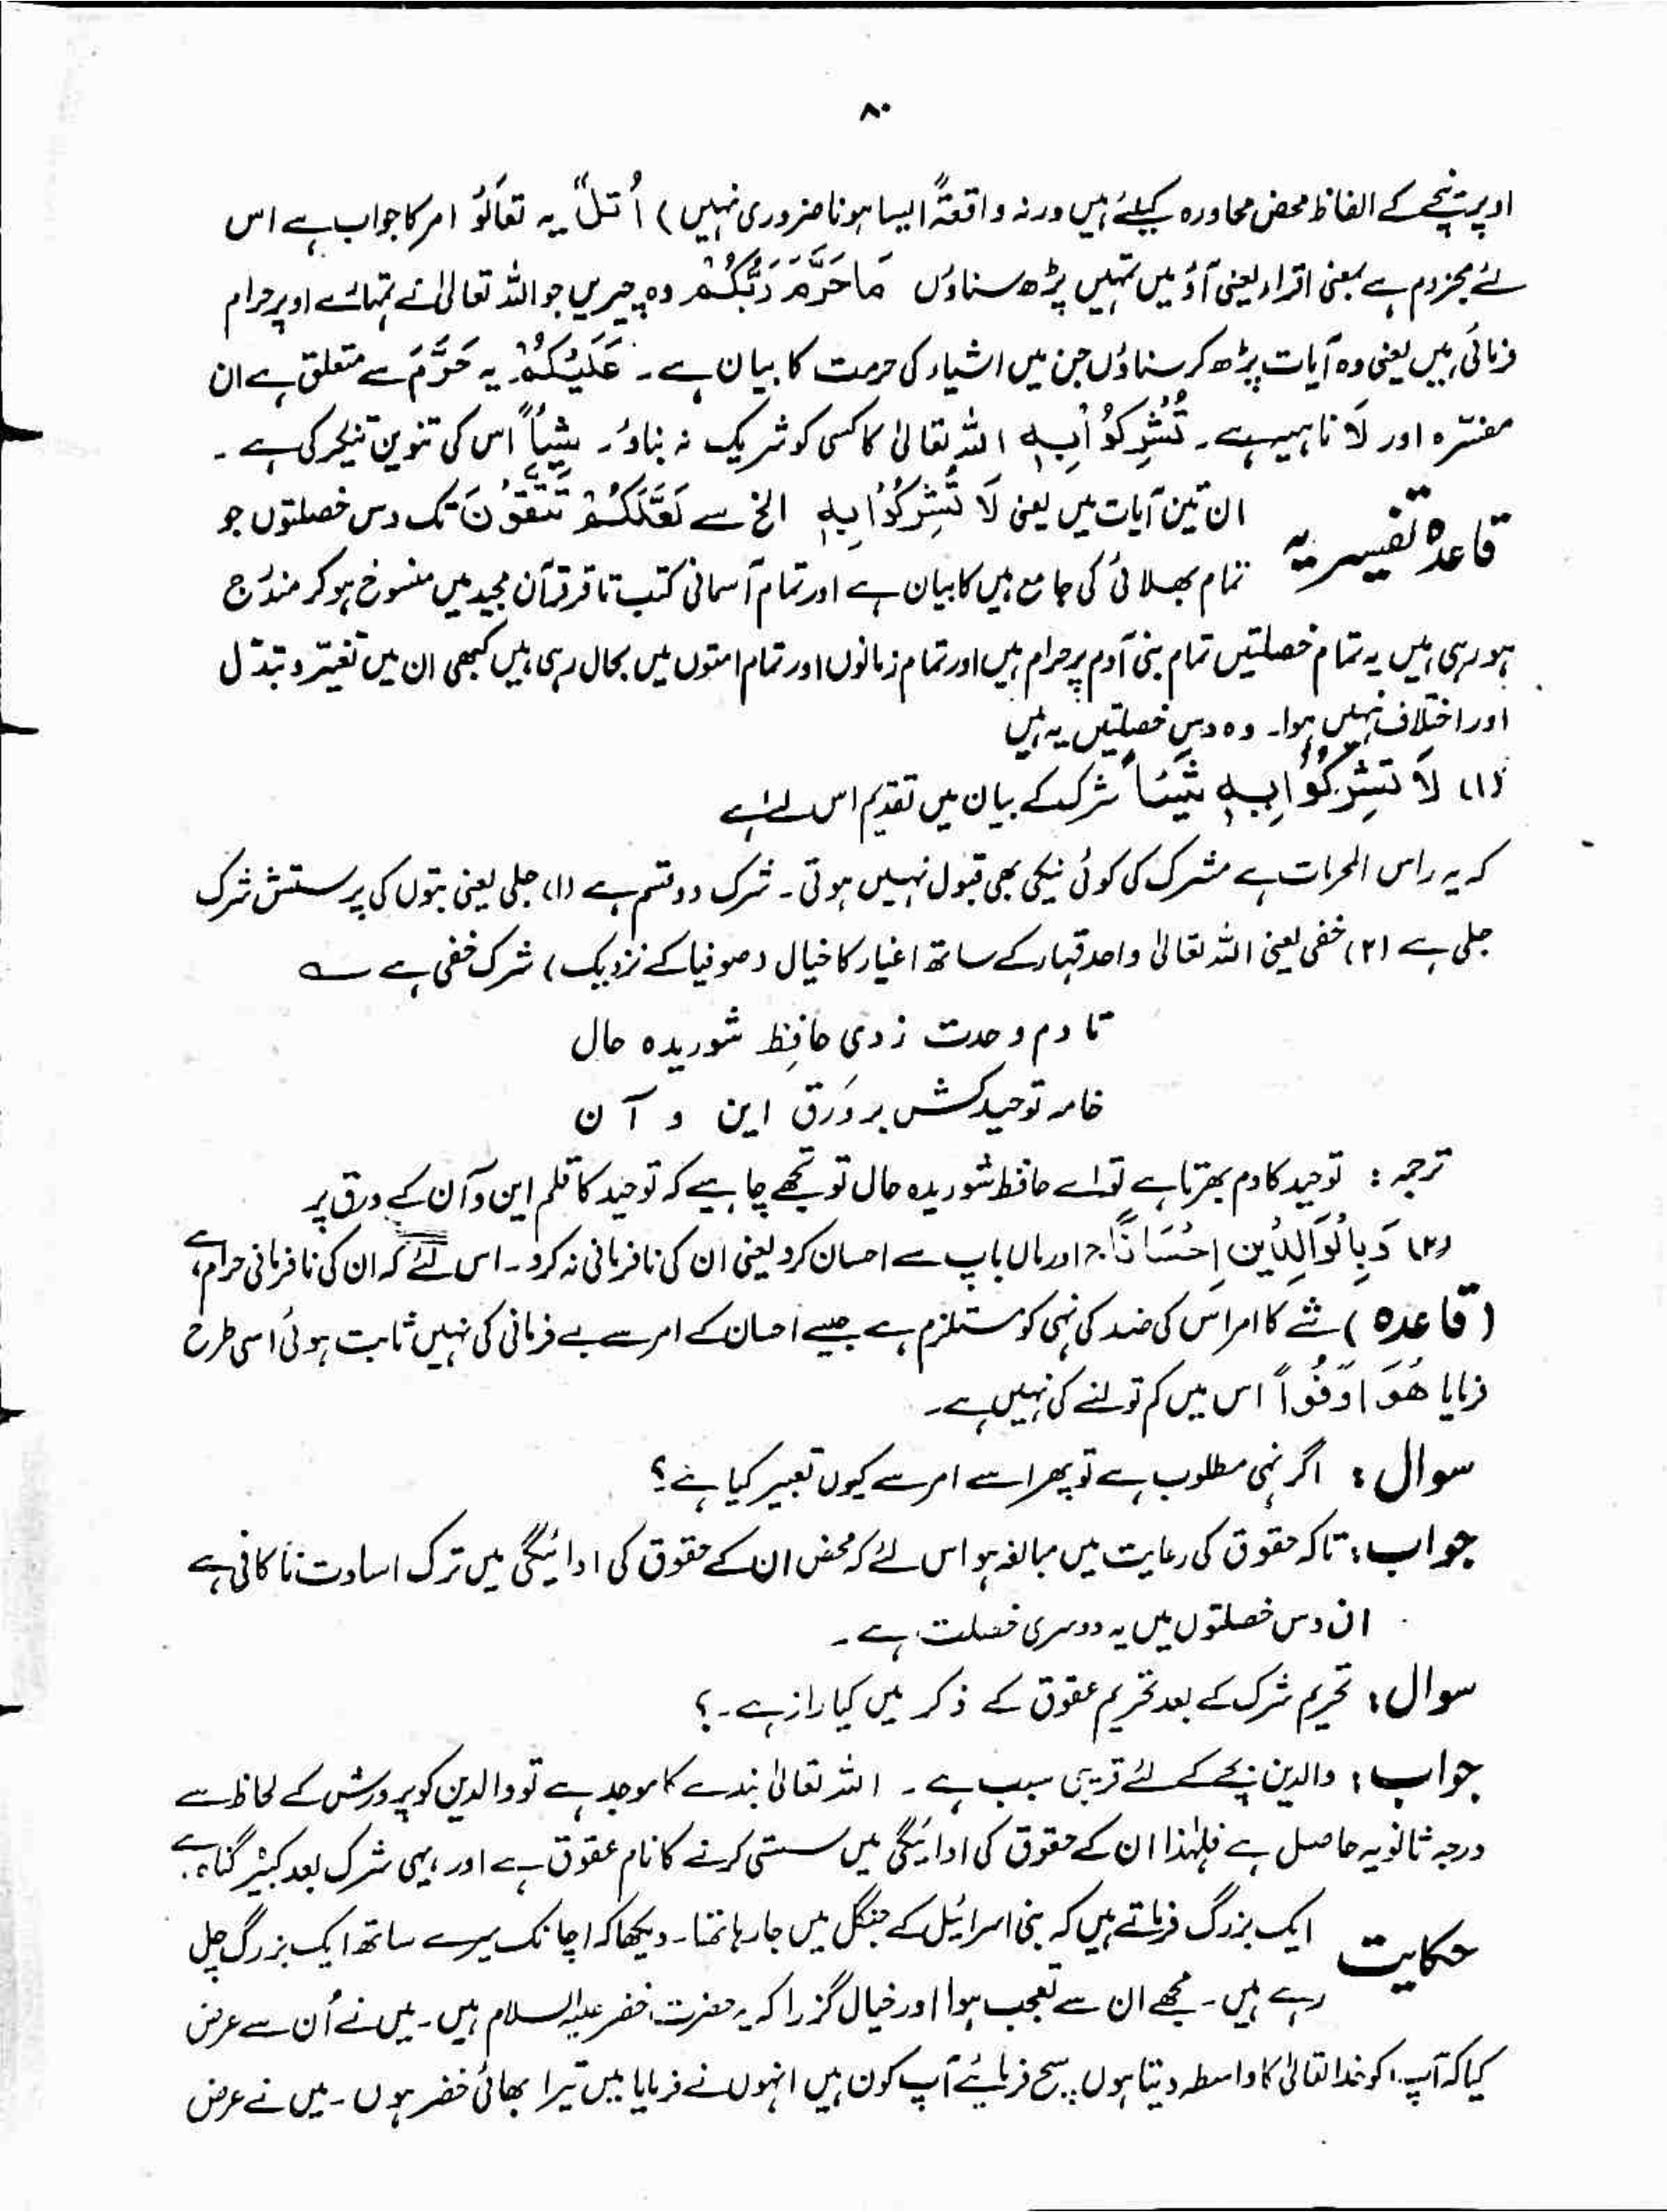 ۸۰
اوپر نیچے کے الفاظ محض محاورہ کیلئے ہیں ورنہ واقعۃً ایسا ہونا ضروری نہیں) اُتْلُ یہ تعَالَوْ امر کا جواب ہے اس
لئے مجزوم ہے بمعنی اقراء یعنی آؤ میں تمہیں پڑھ سناؤں مَا حَرَّمَ رَبُّكُمْ وہ چیزیں جو اللہ تعالیٰ نے تمہارے اوپر حرام
فرمائی ہیں یعنی وہ آیات پڑھ کر سناؤں جن میں اشیاء کی حرمت کا بیان ہے۔ عَلَيْكُمْ یہ حَرَّمَ سے متعلق ہے ان
مفسّرہ اور لَا ناہیہ ہے۔ تُشْرِكُوْا بِہٖ اللہ تعالیٰ کا کسی کو شریک نہ بناؤ۔ شَیْـاً اس کی تنوین تنکیر کی ہے۔
قاعدہ تفسیریہ ان تین آیات میں یعنی لَا تُشْرِكُوْا بِہٖ الخ سے لَعَلَّكُمْ تَتَّقُوْنَ تک دس خصلتوں جو
تمام بھلائی کی جامع ہیں کا بیان ہے اور تمام آسمانی کتب تا قرآن مجید میں منسوخ ہو کر مندرج
ہو رہی ہیں یہ تمام خصلتیں تمام بنی آدم پر حرام ہیں اور تمام زمانوں اور تمام امتوں میں بحال رہی ہیں کبھی ان میں تغیّر و تبدّل
اور اختلاف نہیں ہوا۔ وہ دس خصلتیں یہ ہیں
(۱) لَا تُشْرِكُوْا بِہٖ شَیْئًا شرک کے بیان میں تقدیم اس لئے ہے
کہ یہ راس المحرمات ہے مشرک کی کوئی نیکی بھی قبول نہیں ہوتی۔ شرک دو قسم ہے (۱) جلی یعنی بتوں کی پرستش شرک
جلی ہے (۲) خفی یعنی اللہ تعالیٰ واحد قہار کے ساتھ اغیار کا خیال (صوفیا کے نزدیک) شرک خفی ہے ؎
تا دم وحدت زدی حافِظ شوریدہ حال
خامہ توحید کش بر وَرَق این و آن
ترجمہ : توحید کا دم بھرتا ہے تو اے حافظ شوریدہ حال تو تجھے چاہیے کہ توحید کا قلم این و آن کے ورق پر
(۲) وَبِالْوَالِدَيْنِ اِحْسَانًا اور ماں باپ سے احسان کرو یعنی ان کی نافرمانی نہ کرو۔ اس لئے کہ ان کی نافرمانی حرام ہے
(قاعدہ) شے کا امر اس کی ضد کی نہی کو مستلزم ہے جیسے احسان کے امر سے بے فرمانی کی نہیں ثابت ہوئی اسی طرح
فرمایا ھُوَ اَوْفُواً اس میں کم تولنے کی نہیں ہے۔
سوال : اگر نہی مطلوب ہے تو پھر اسے امر سے کیوں تعبیر کیا ہے؟
جواب : تاکہ حقوق کی رعایت میں مبالغہ ہو اس لئے کہ محض ان کے حقوق کی ادائیگی میں ترک اساءت ناکافی ہے
ان دس خصلتوں میں یہ دوسری خصلت ہے۔
سوال : تحریم شرک کے بعد تحریم عقوق کے ذکر میں کیا راز ہے۔؟
جواب : والدین بچے کے لئے قریبی سبب ہے۔ اللہ تعالیٰ بندے کا موجد ہے تو والدین کو پرورش کے لحاظ سے
درجہ ثانویہ حاصل ہے فلہٰذا ان کے حقوق کی ادائیگی میں سستی کرنے کا نام عقوق ہے اور یہی شرک بعد کبیر گناہ ہے۔
حکایت ایک بزرگ فرماتے ہیں کہ بنی اسرائیل کے جنگل میں جا رہا تھا۔ دیکھا کہ اچانک میرے ساتھ ایک بزرگ چل
رہے ہیں۔ مجھے ان سے تعجب ہوا اور خیال گزرا کہ یہ حضرت خضر علیہ السلام ہیں۔ میں نے اُن سے عرض
کیا کہ آپ کو خدا تعالیٰ کا واسطہ دیتا ہوں سچ فرمایئے آپ کون ہیں انہوں نے فرمایا میں تیرا بھائی خضر ہوں۔ میں نے عرض